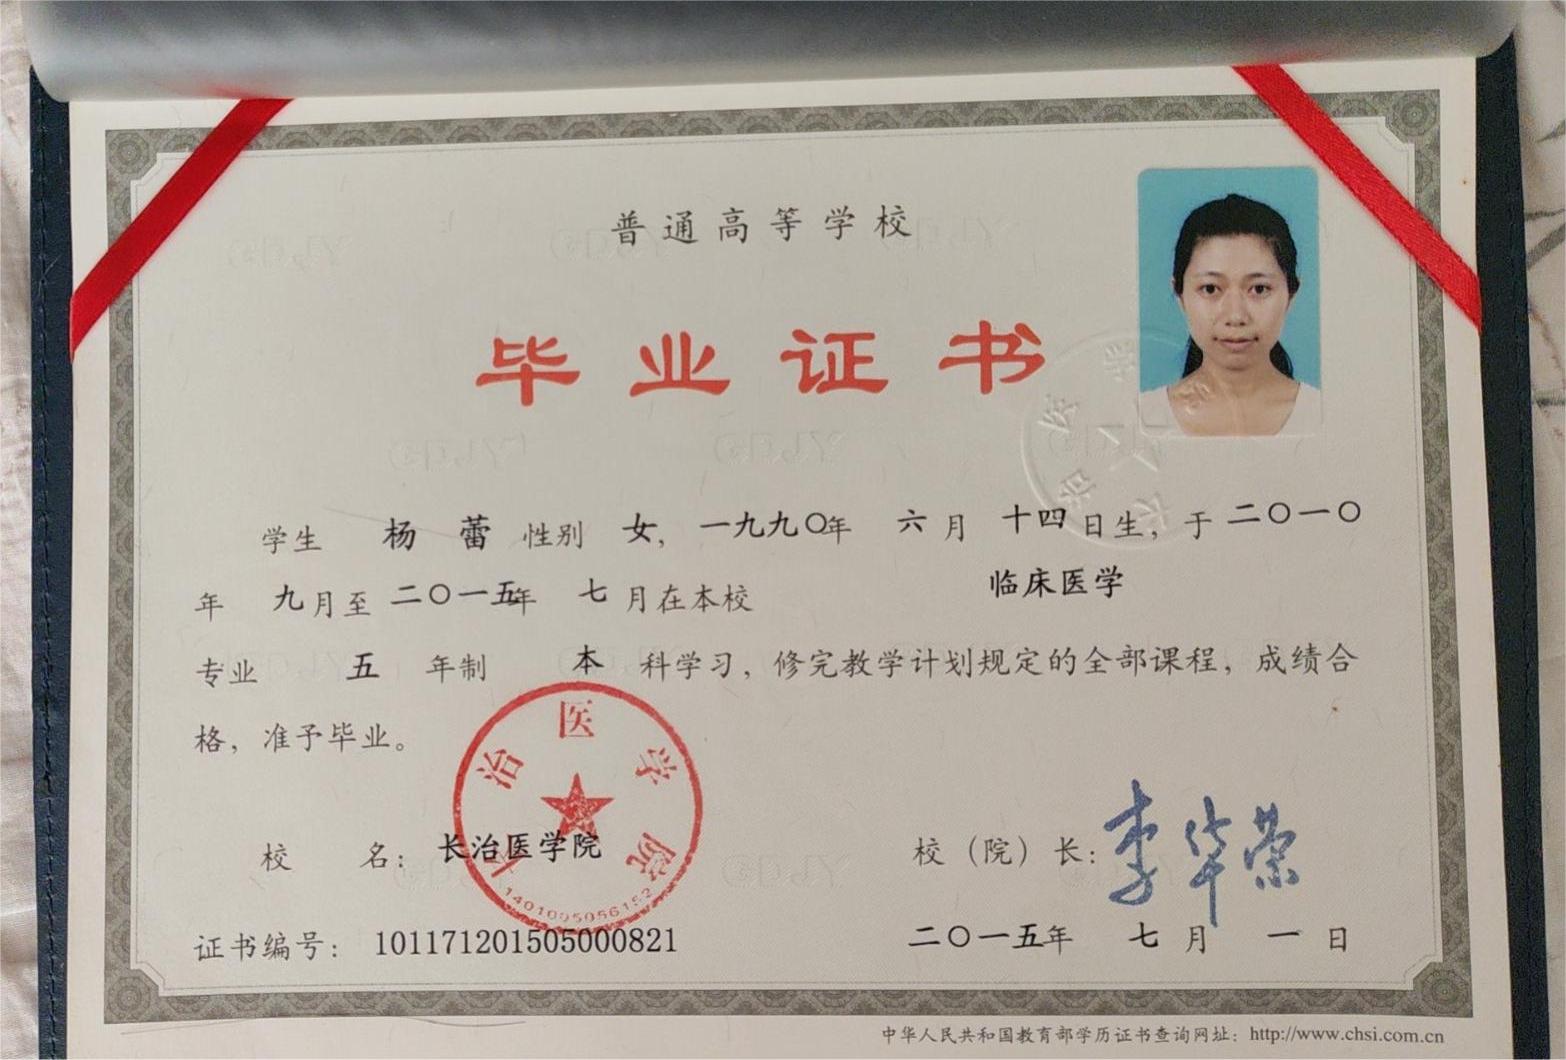 普通高等学校
毕业证书
学生 杨蕾 性别 女, 一九九〇年 六月 十四日生, 于二〇一〇
年 九月至二〇一五年 七月在本校 临床医学
专业 五 年制 本 科学习, 修完教学计划规定的全部课程, 成绩合
格, 准予毕业。
长治医学院
校 名: 长治医学院
校（院）长: 李华荣
证书编号: 101171201505000821
二〇一五年 七月 一日
中华人民共和国教育部学历证书查询网址: http://www.chsi.com.cn